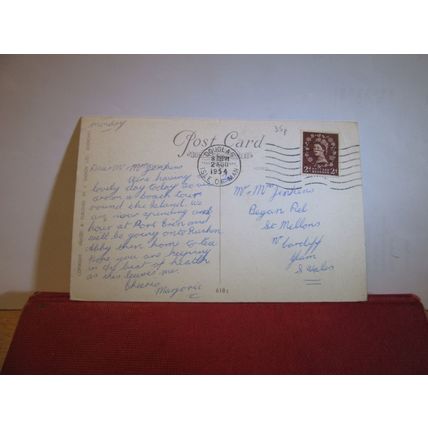 Monday
35p
Post Card
DOUGLAS
2 AUG
1954
ISLE OF MAN
2d 2d
Dear Mr & Mrs Jenkins
having
lovely day today
on a coach tour
round the Island. we
are now spending an
hour at Port Erin and
will be going onto Rushen
Abby then home to tea
hope you are keeping
in the best of health
as this leaves me.
Cheerio
Marjorie
Mr & Mrs Jenkins
Began Rd
St Mellons
Nr Cardiff
Glam
S Wales
6181